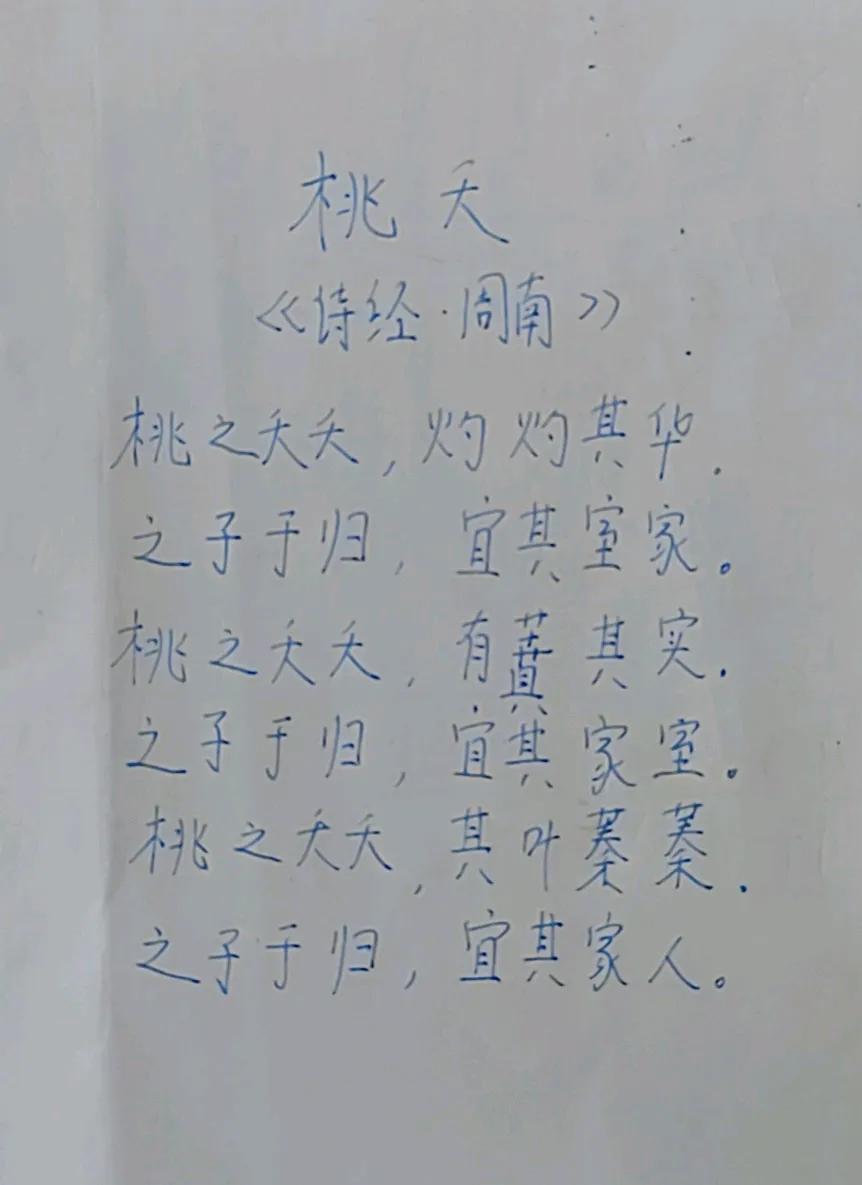 桃夭
《诗经·周南》
桃之夭夭,灼灼其华.
之子于归,宜其室家。
桃之夭夭,有蕡其实.
之子于归,宜其家室。
桃之夭夭,其叶蓁蓁.
之子于归,宜其家人。